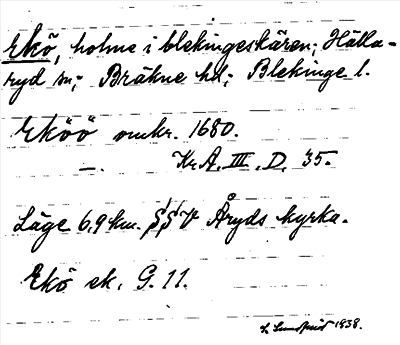 Ekö, holme i blekingeskären; Hälla-
ryd sn; Bräkne hd; Blekinge l.
Eköö omkr. 1680.
—. Kr.A. III. D. 35.
Läge 6,9 km. S´S´V Åryds kyrka.
Ekö ek. G. 11.
1938.